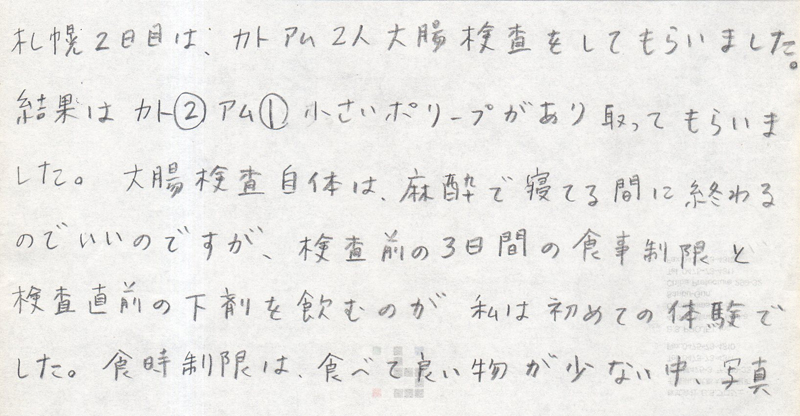 札幌2日目は、カトアム2人大腸検査をしてもらいました。
結果はカト②アム①小さいポリープがあり取ってもらいま
した。大腸検査自体は、麻酔で寝てる間に終わる
のでいいのですが、検査前の3日間の食事制限と
検査直前の下剤を飲むのが私は初めての体験で
した。食時制限は、食べて良い物が少ない中、写真